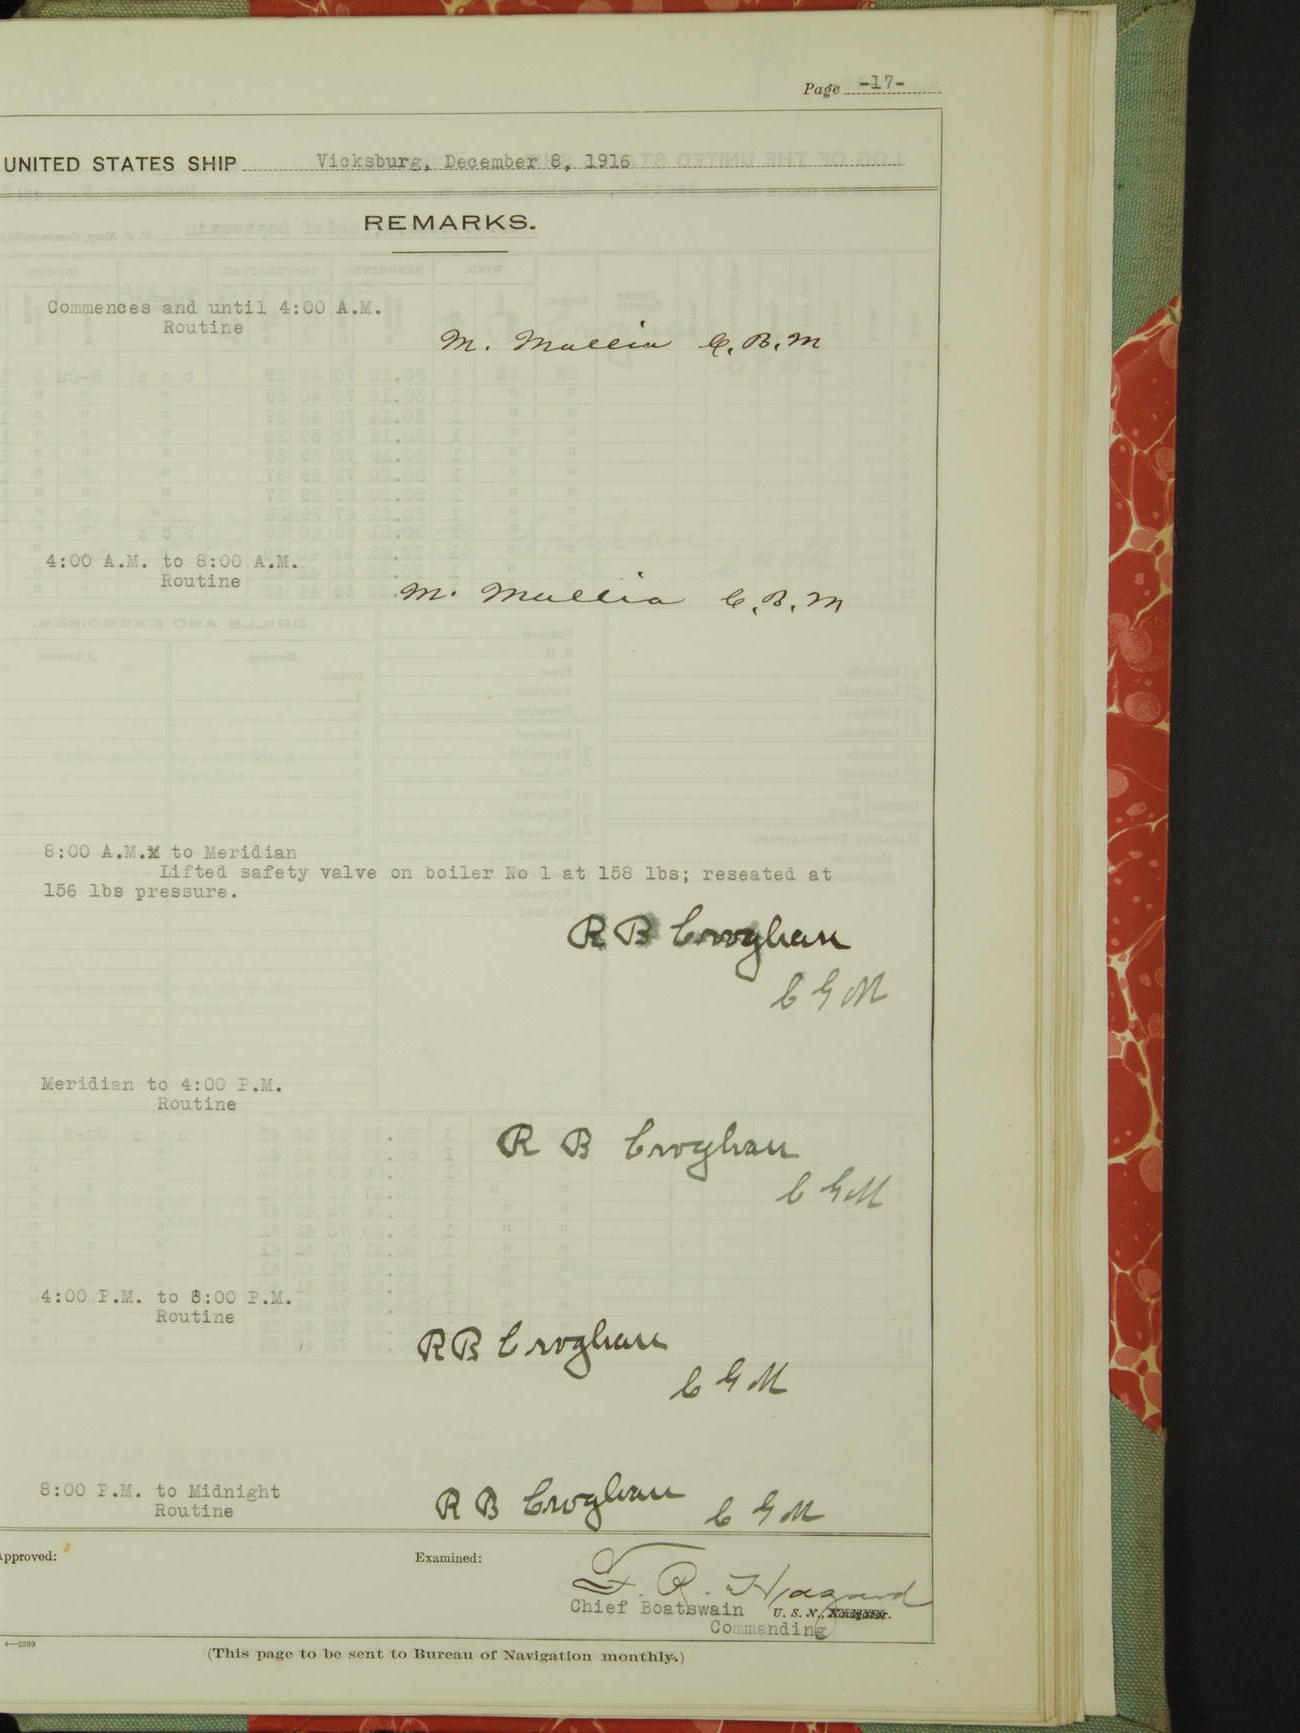 Page -17-
UNITED STATES SHIP Vicksburg, December 8, 1916
REMARKS.
Commences and until 4:00 A.M.
Routine
M. Mullia C.B.M
4:00 A.M. to 8:00 A.M.
Routine
M. Mullia C.B.M
8:00 A.M.x to Meridian
Lifted safety valve on boiler No 1 at 158 lbs; reseated at
156 lbs pressure.
R B Croghan
C G M
Meridian to 4:00 P.M.
Routine
R B Croghan
C G M
4:00 P.M. to 8:00 P.M.
Routine
R B Croghan
C G M
8:00 P.M. to Midnight
Routine
R B Croghan C G M
Approved:
Examined:
F. R. Hazard
Chief Boatswain U. S. N., Navigator.
Commanding
4—2599
(This page to be sent to Bureau of Navigation monthly.)